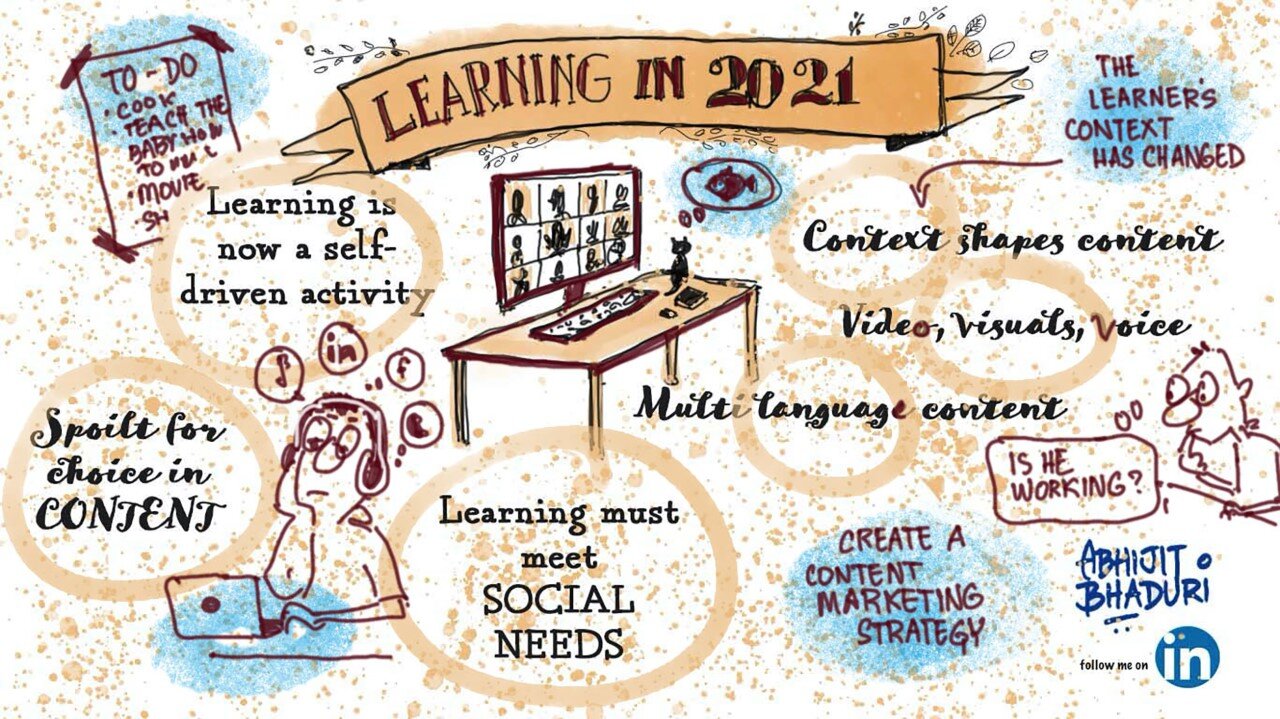 LEARNING IN 2021
TO-DO
• COOK
• TEACH THE
BABY HOW
TO
• MOVIE
Learning is
now a self-
driven activity
THE
LEARNER'S
CONTEXT
HAS CHANGED
Context shapes content
Video, visuals, voice
Multi language content
in
f
Spoilt for
choice in
CONTENT
Learning must
meet
SOCIAL
NEEDS
IS HE
WORKING?
CREATE A
CONTENT
MARKETING
STRATEGY
ABHIJIT
BHADURI
follow me on in